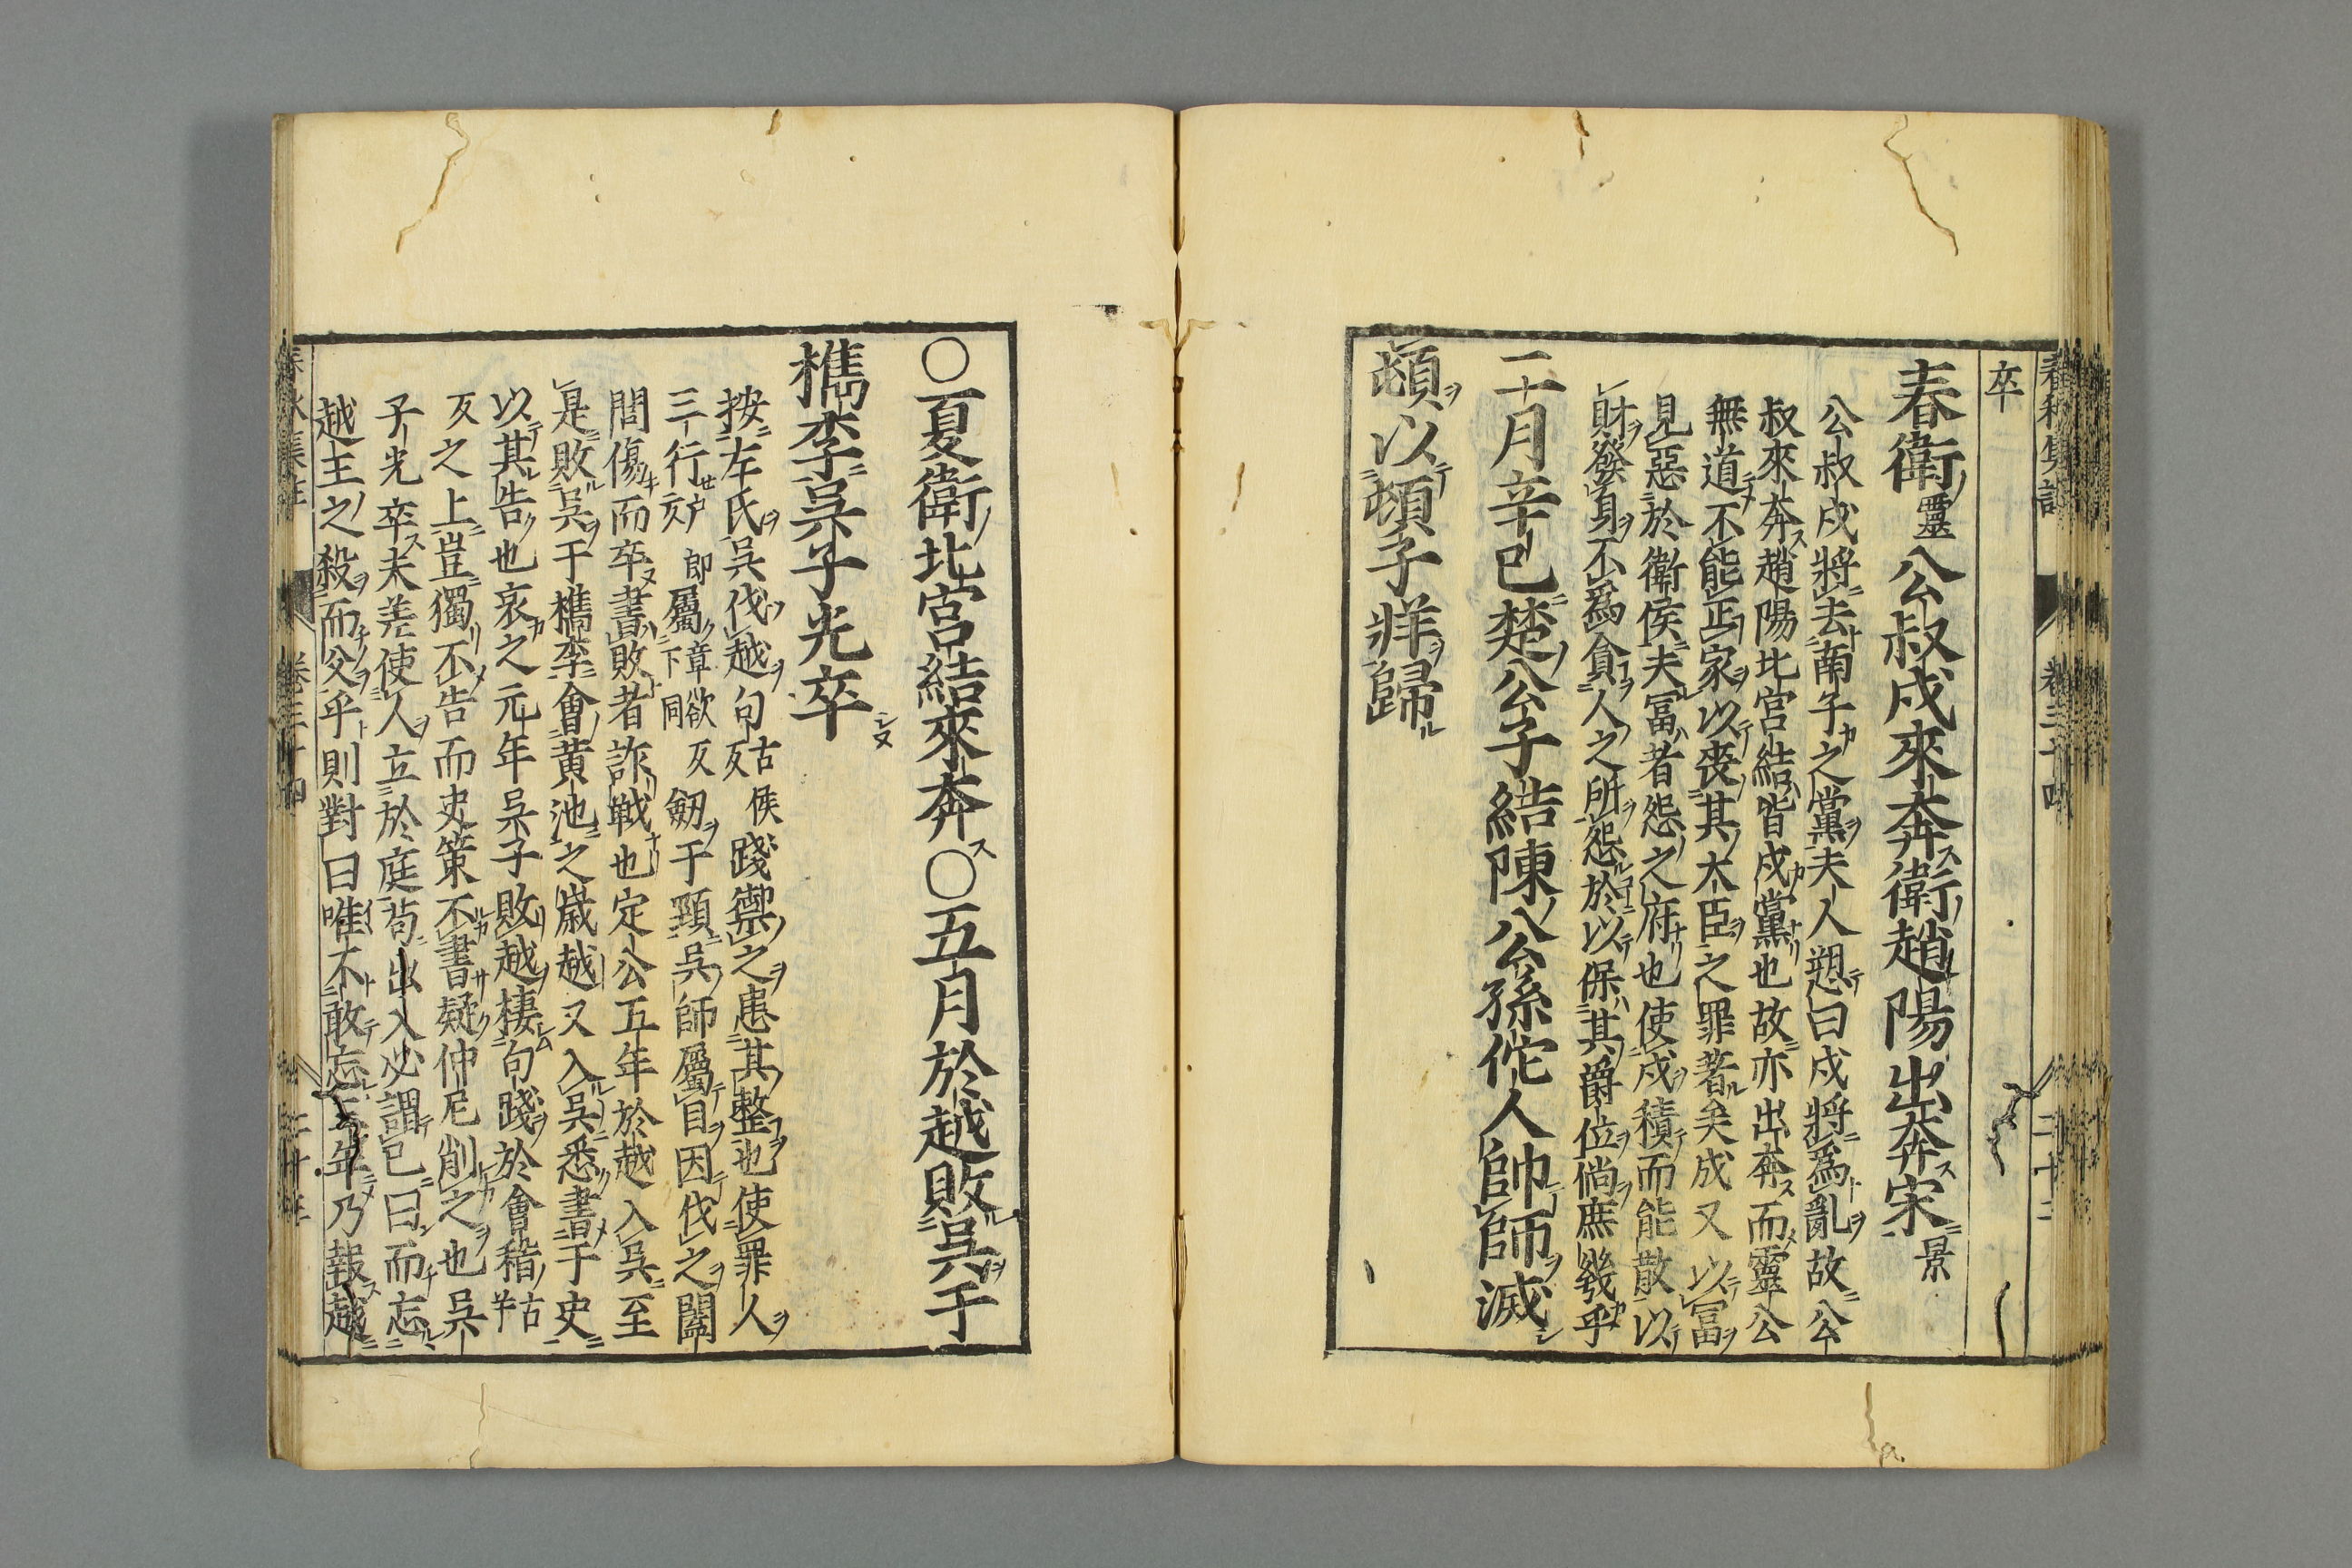 卒
春衛靈公叔戍來奔衛趙陽出奔宋景
公叔戍將去南子之黨夫人愬曰戍將爲亂故公
叔來奔趙陽北宮結皆戍黨也故亦出奔而靈公
無道不能正家以喪其大臣之罪著矣戍又以冨
見惡於衛侯夫冨者怨之府也使戍積而能散以
財發身不爲貪人之所怨於以保其爵位倘庶幾乎
二月辛巳楚公子結陳公孫佗人帥師滅
頓以頓子牂歸
○夏衛北宮結來奔○五月於越敗吳于
檇李吳子光卒
按左氏吳伐越句古侯反踐禦之患其整也使罪人
三行戶郎反屬章欲反下同劒于頸吳師屬目因伐之闔
閭傷而卒書敗者詐戰也定公五年於越入吳至
是敗吳于檇李會黃池之歲越又入吳悉書于史
以其告也哀之元年吳子敗越棲句踐於會稽古
反之上豈獨不告而史策不書疑仲尼削之也吳
子光卒夫差使人立於庭苟出入必謂已曰而忘
越王之殺而父乎則對曰唯不敢忘三年乃報越